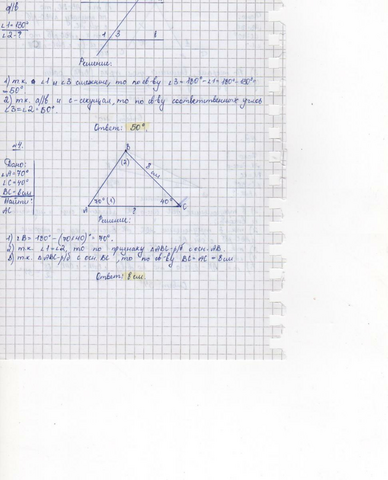 a||b
∠1=130°
∠2-?
1 3 b
Решение:
1) т.к. ∠1 и ∠3 смежные, то по св-ву ∠3=180°-∠1=180°-130°=
=50°
2) т.к. a||b и c-секущая, то по св-ву соответственных углов
∠3=∠2=50°.
Ответ: 50°.
№4.
Дано:
∠A=70°
∠C=40°
BC=8см
Найти:
AC
B
(2)
8 см
70° (1)
40°
A ? C
Решение:
1) ∠B=180°-(70+40)°=70°.
2) т.к. ∠1=∠2, то по признаку △ABC-р/б с осн. AB.
3) т.к. △ABC-р/б с осн. , то по св-ву BC=AC=8см.
Ответ: 8см.